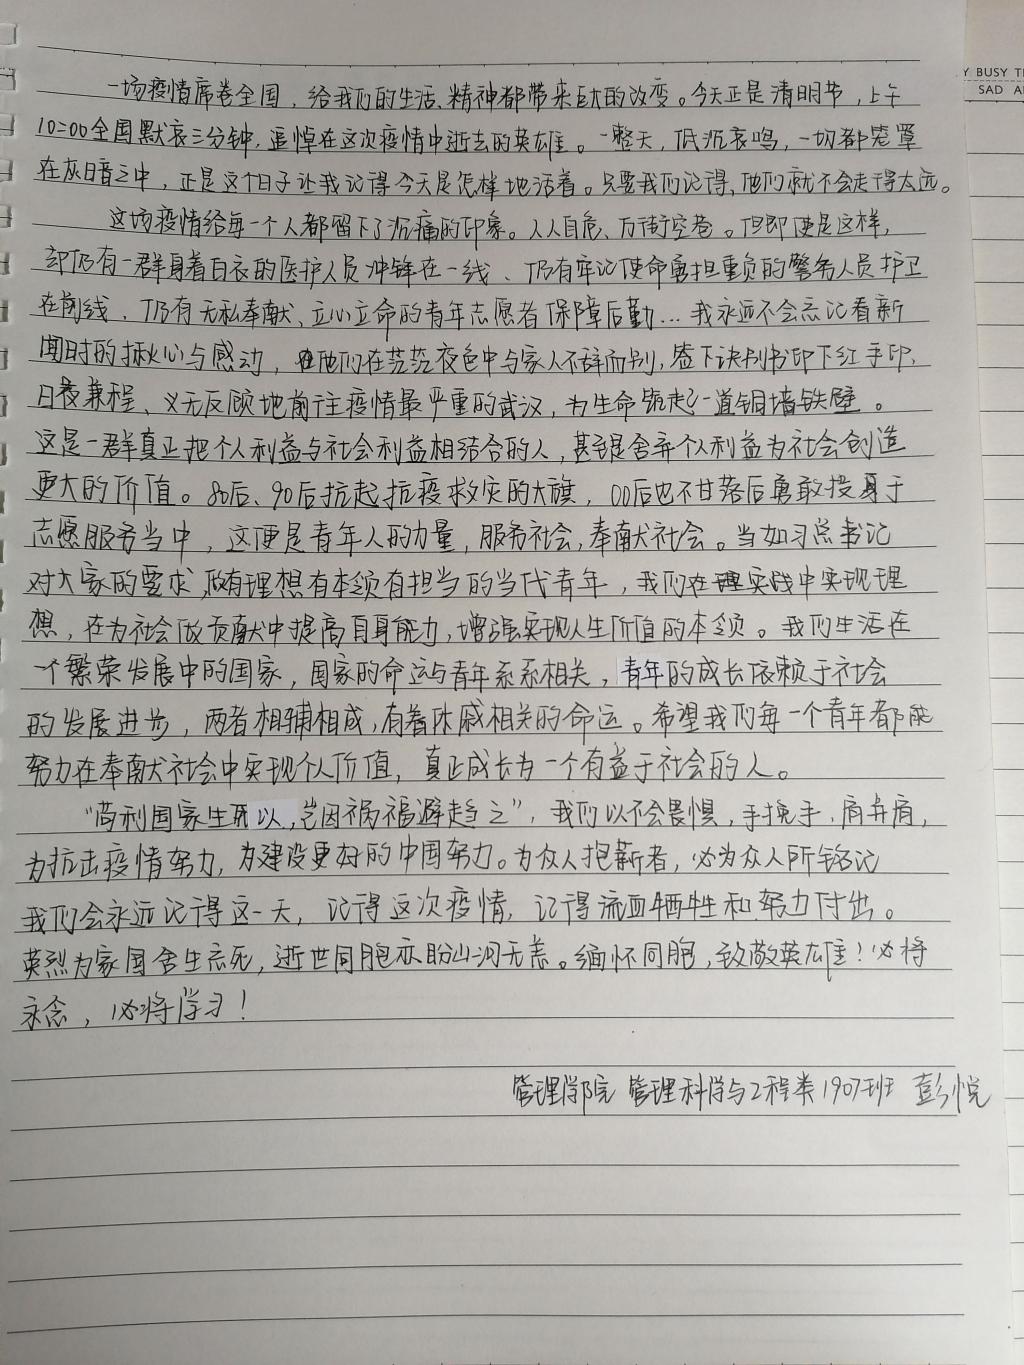 一场疫情席卷全国，给我们的生活、精神都带来巨大的改变。今天正是清明节，上午
10:00全国默哀三分钟，追悼在这次疫情中逝去的英雄。一整天，低沉哀鸣，一切都笼罩
在灰暗之中，正是这个日子让我记得今天是怎样地活着。只要我们记得，他们就不会走得太远。
这场疫情给每一个人都留下了沉痛的印象。人人自危、万街空巷。但即便是这样，
却仍有一群身着白衣的医护人员冲锋在一线、仍有牢记使命勇担重负的警务人员护卫
在前线、仍有无私奉献、立心立命的青年志愿者保障后勤…我永远不会忘记看新
闻时的揪心与感动，他们在茫茫夜色中与家人不辞而别，签下诀别书印下红手印，
日夜兼程、义无反顾地前往疫情最严重的武汉，为生命筑起一道铜墙铁壁。
这是一群真正把个人利益与社会利益相结合的人，甚至是舍弃个人利益为社会创造
更大的价值。80后、90后抗起抗疫救灾的大旗，00后也不甘落后勇敢投身于
志愿服务当中，这便是青年人的力量，服务社会，奉献社会。当如习总书记
对大家的要求，做有理想有本领有担当的当代青年，我们在实践中实现理
想，在为社会做贡献中提高自身能力，增强实现人生价值的本领。我们生活在
一个繁荣发展中的国家，国家的命运与青年系系相关，青年的成长依赖于社会
的发展进步，两者相辅相成，有着休戚相关的命运。希望我们每一个青年都能
努力在奉献社会中实现个人价值，真正成长为一个有益于社会的人。
“苟利国家生死以，岂因祸福避趋之”，我们以不会畏惧，手挽手，肩并肩，
为抗击疫情努力，为建设更好的中国努力。为众人抱薪者，必为众人所铭记
我们会永远记得这一天，记得这次疫情，记得流血牺牲和努力付出。
英烈为家国舍生忘死，逝世同胞亦盼山河无恙。缅怀同胞，致敬英雄！必将
永念，必将学习！
管理学院 管理科学与工程类1907班 彭悦
Y BUSY
SAD